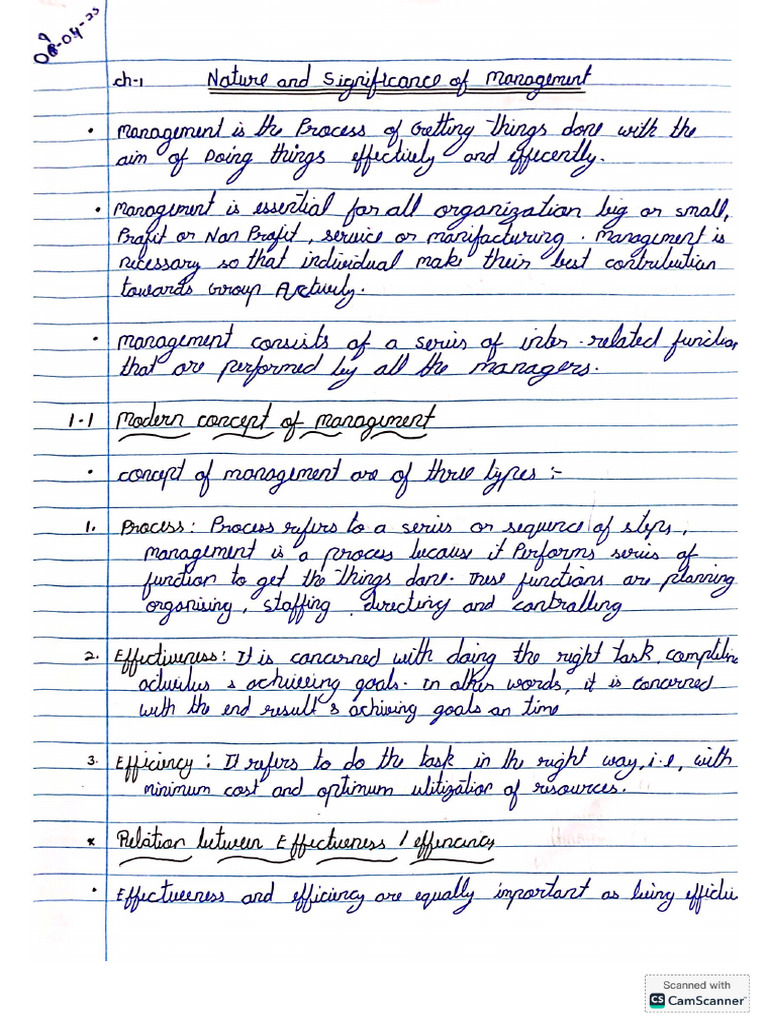 08-04-23
ch-1 Nature and Significance of Management
• Management is the Process of Getting things done with the
aim of Doing things effectively and effecently.
• Management is essential for all organization big or small,
Profit or Non Profit, service or manifacturing. Management is
necessary so that individual make their best contribution
towards Group Activity.
• Management consists of a series of inter-related function
that are performed by all the managers.
1.1 Modern concept of management
• concept of management are of three types :-
1. Process : Process refers to a series or sequence of steps,
management is a process because it Performs series of
function to get the things done. These functions are planning
organising, staffing, directing and controlling
2. Effectiveness : It is concerned with doing the right task, completing
activities & achieving goals. In other words, it is concerned
with the end result & achiving goals on time
3. Efficiency : It refers to do the task in the right way, i.e, with
minimum cost and optimum utilization of resources.
* Relation between Effectiveness / effenciency
• Effectiveness and efficiency are equally important as being
Scanned with
CS CamScanner